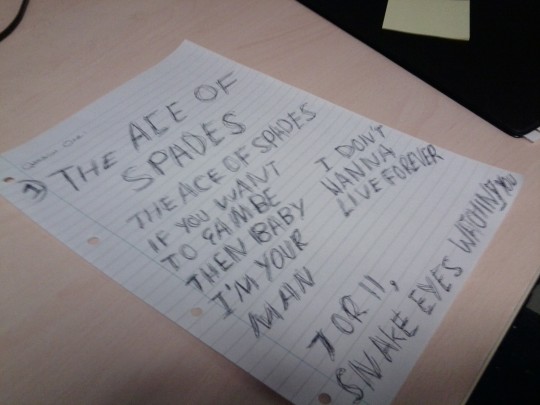 ① THE ACE OF
SPADES
THE ACE OF SPADES
IF YOU WANT
TO GAMBE
THEN BABY
I'M YOUR
MAN
I DON'T
WANNA
LIVE FOREVER
7 OR 11,
SNAKE EYES WATCHING YOU